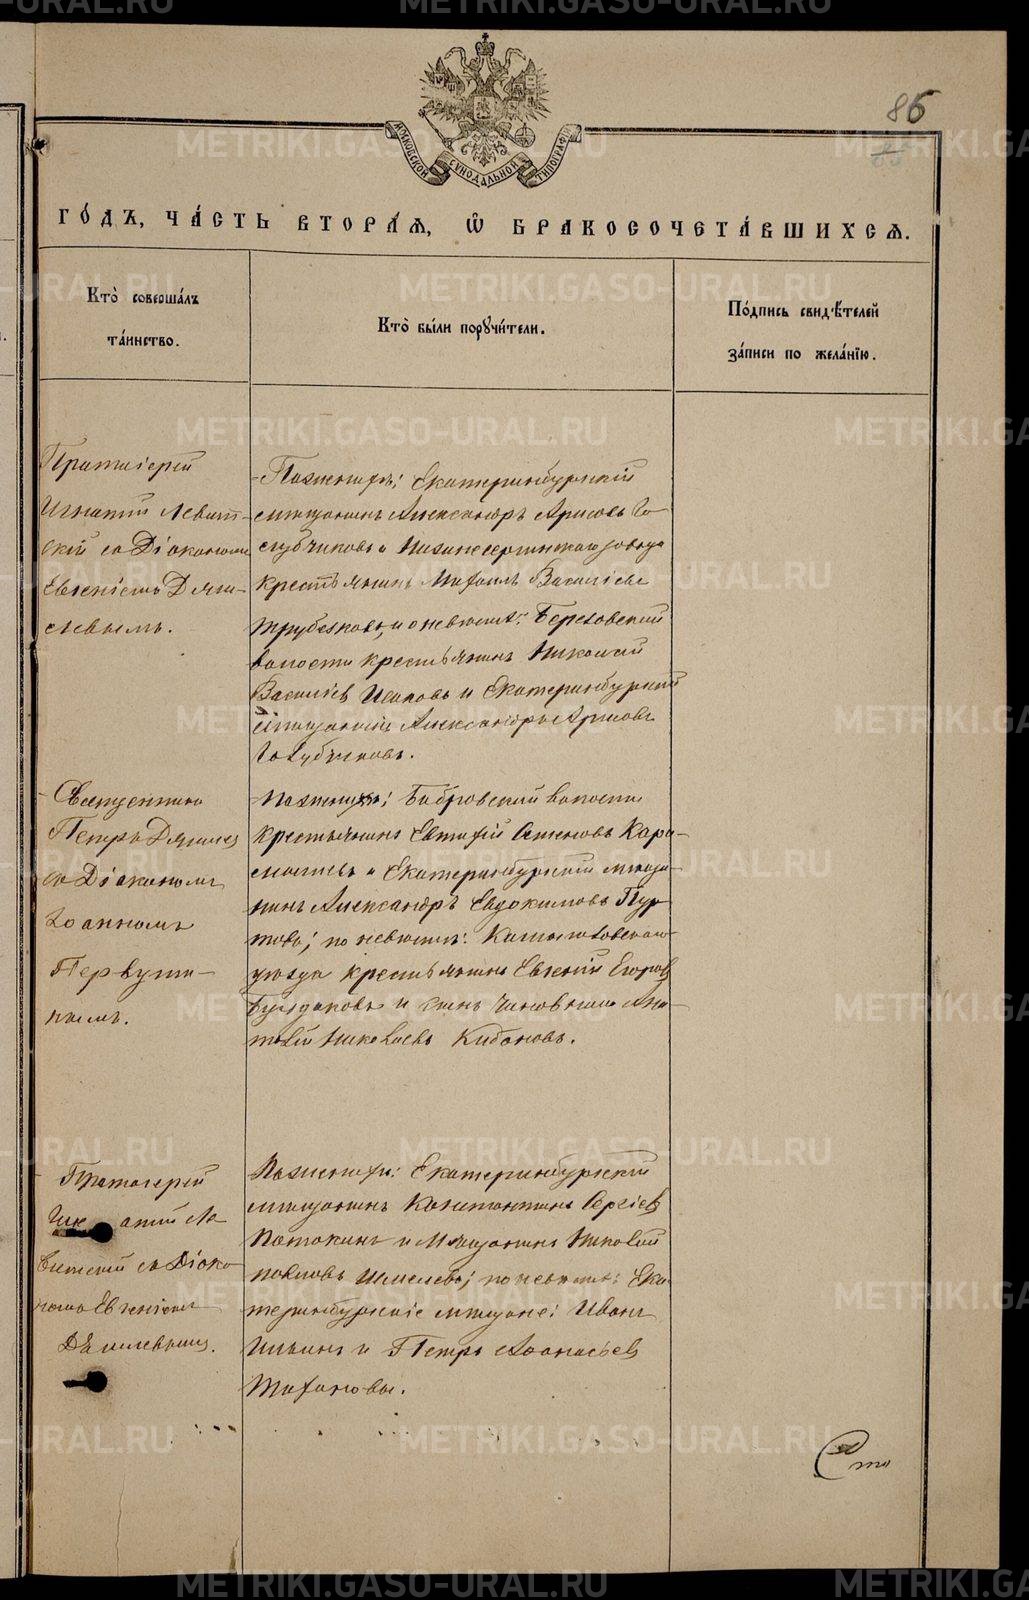 86
85
МОСКОВСКОЙ СѴНОДАЛЬНОЙ ТИПОГРАФІИ
ГО́ДЪ, ЧА́СТЬ ВТОРА́Ѧ, Ѽ БРАКОСОЧЕТА́ВШИХСѦ.
Кто̀ соверша́лъ
та́инство.
Кто̀ бы́ли порꙋчи́тели.
По́дпись свидѣ́телей
за́писи по жела́нїю.
Протоіерей
Игнатій Левит-
скій съ Діакономъ
Евгеніемъ Дяги-
левымъ.
По женихѣ: Екатеринбургскій
мѣщанинъ Александръ Го-
лубчиковъ и Нижнесергинскаго завода
крестьянинъ Михаилъ Васильевъ
Трубековъ, по невѣстѣ: Березовской
волости крестьянинъ Николай
Васильевъ Исаковъ и Екатеринбургскій
мѣщанинъ Александръ
Голубчиковъ.
Священникъ
Петръ Дягилевъ
съ Діакономъ
Іоанномъ
Первуши-
нымъ.
По женихѣ: Бобровской волости
крестьянинъ Евтифій Семеновъ Кара-
и Екатеринбургскій мѣща-
нинъ Александръ Евдокимовъ Пур-
товъ; по невѣстѣ: Камышловскаго
уѣзда крестьянинъ Евгеній Егоровъ
Булдаковъ и сынъ чиновника Ана-
толій Николаевъ Кибановъ.
Протоіерей
Игнатій Ле-
витскій съ Діако-
номъ Евгеніемъ
Дягилевымъ.
По женихѣ: Екатеринбургскій
мѣщанинъ Константинъ Сергіевъ
Потокинъ и Мѣщанинъ Николай
Павловъ Шмелевъ; по невѣстѣ: Ека-
теринбургскіе мѣщане: Иванъ
Ильинъ и Петръ Афонасьевъ
Тихановы.
Сто
METRIKI.GASO-URAL.RU